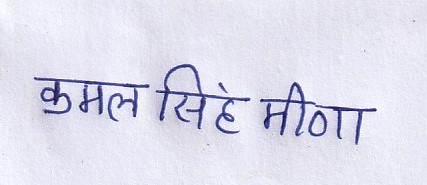 कमल सिहं मीणा